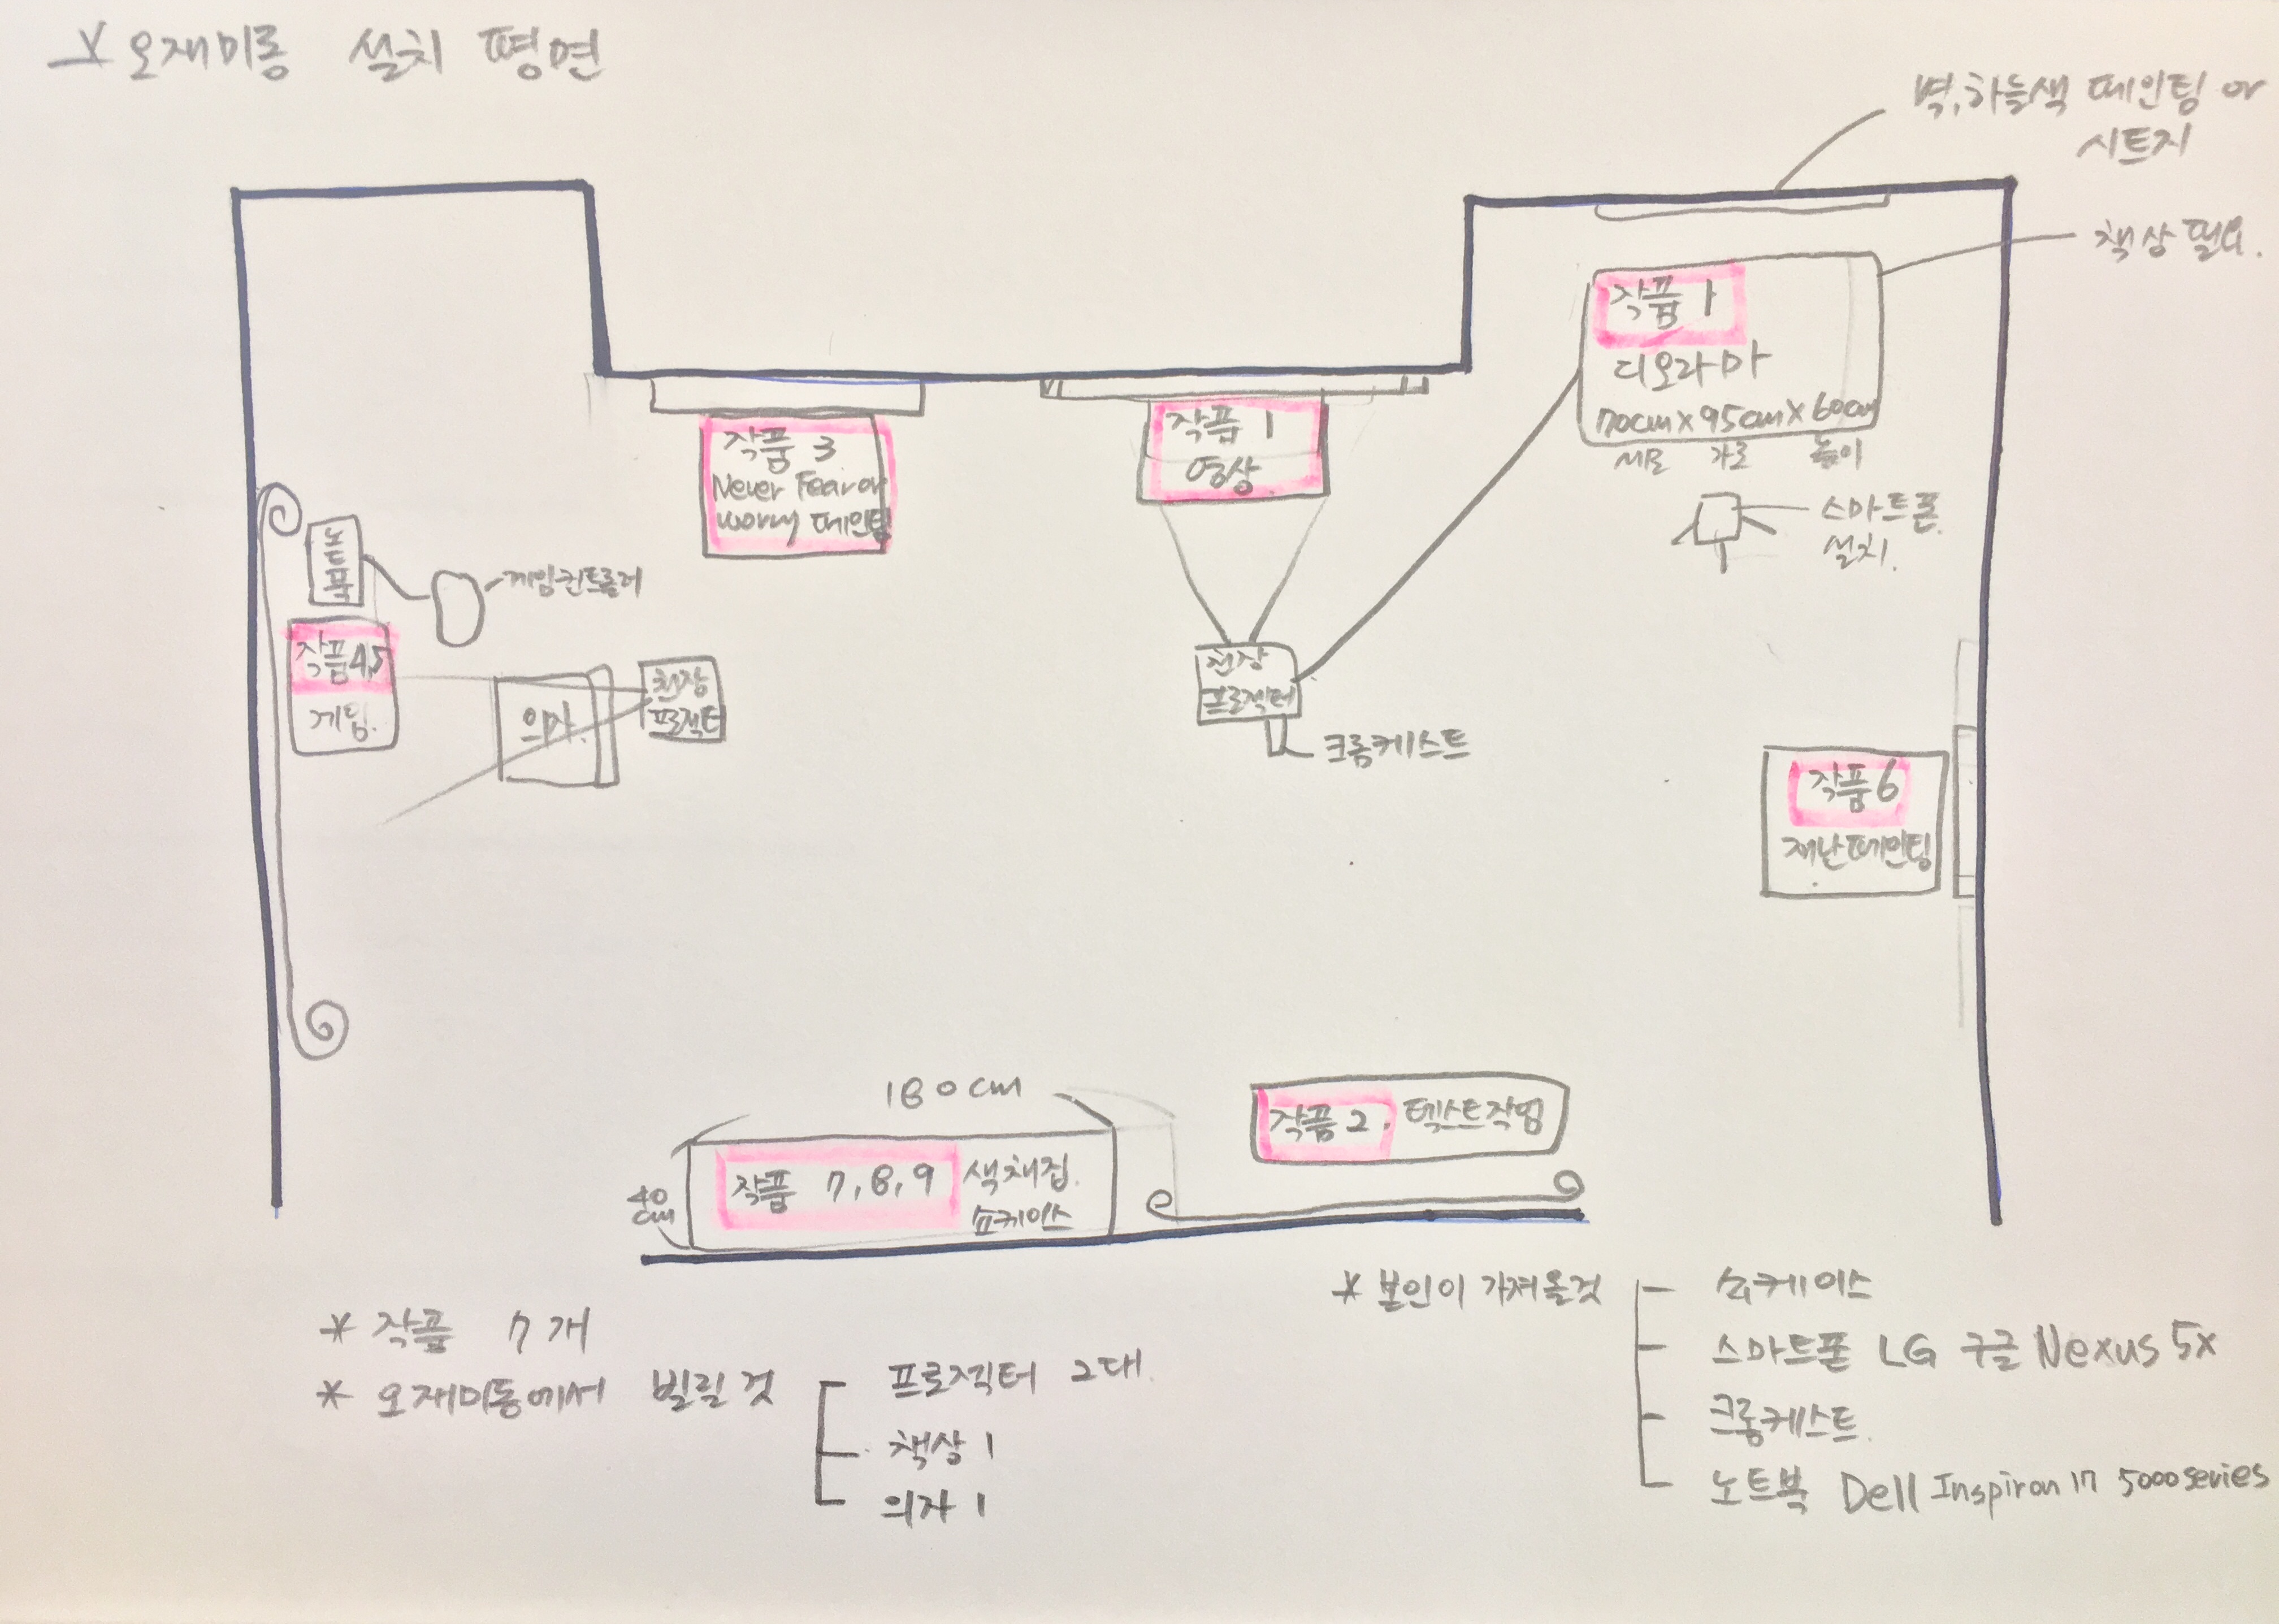 * 오재미동 설치 평면
벽, 하늘색 페인팅 or
시트지
책상 필요.
작품 1
디오라마
70cm x 95cm x 60cm
세로 가로 높이
스마트폰
설치.
작품 3
Never Fear or
worry 페인팅
작품 1
영상
노트북
게임컨트롤러
작품 4,5
게임.
의자
천장
프로젝터
천장
프로젝터
크롬케스트
작품 6
재난페인팅
180cm
40
cm
작품 7,8,9 색채집.
쇼케이스
작품 2. 텍스트작업
* 작품 7개
* 오재미동에서 빌릴것
프로젝터 2대.
책상 1
의자 1
* 본인이 가져올것
쇼케이스
스마트폰 LG 구글 Nexus 5x
크롬케스트.
노트북 Dell Inspiron 17 5000 series